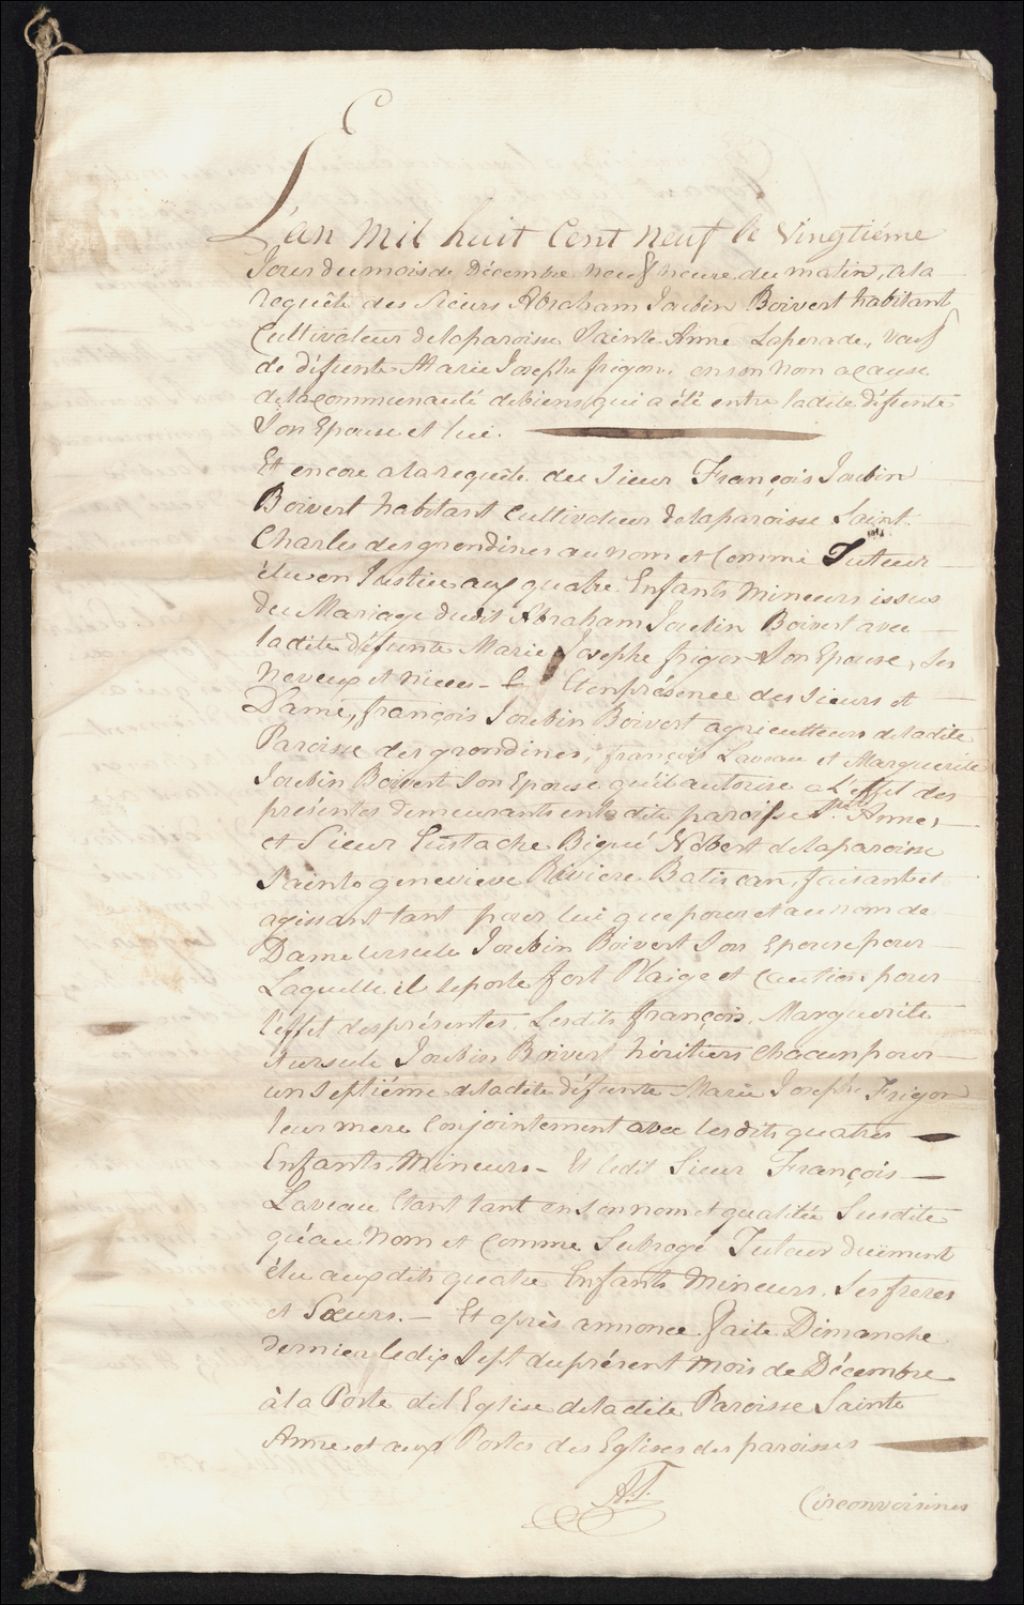 L'an Mil huit Cent Neuf le Vingtiéme
Jour du mois de Décembre neuf heure du matin, a la
requête des Sieurs Abraham Joubin Boivert habitant
Cultivateur de la paroisse Sainte Anne Laperade, veuf
de défunte Marie Josephe frigon, en son nom a cause
de la communauté de biens qui a été entre ladite défunte
Son Epouse et lui.
Et encore a la requête du Sieur François Joubin
Boivert habitant Cultivateur de la paroisse Saint
Charles des grondines au nom et Comme Tuteur
élu en Justice aux quatre Enfants Mineurs issus
du Mariage dudit Abraham Joubin Boivert avec
ladite défunte Marie Josephe frigon Son Epouse, Ses
Neveux et Nieces - Et en présence des Sieurs et
Dame, françois Joubin Boivert agriculteur de ladite
Paroisse des grondines, françois Laveau et Marguerite
Joubin Boivert Son Epouse qu'il autorise a L'effet des
présentes demeurants en ladite paroisse Ste. Anne,
et Sieur Eustache Biqué Nobert de la paroisse
Sainte genevieve Riviere Batiscan, faisant et
agissant tant pour lui que pour et au nom de
Dame Ursule Joubin Boivert Son Epouse pour
Laquelle il se porte fort Plaige et Caution pour
l'effet des présentes. Lesdits françois, Marguerite
et ursule Joubin Boivert héritiers Chacun pour
un Septiéme de ladite défunte Marie Josephe Frigon
leur mere Conjointement avec lesdits quatres
Enfants Mineurs - Et ledit Sieur François
Laveau Etant tant en Son nom et qualitée Susdite
qu'au Nom et Comme Subrogé Tuteur duëment
élu auxdits quatre Enfants Mineurs. Ses freres
et Sœurs. - Et après annonce faite Dimanche
dernier le dix Sept du présent Mois de Décembre
à la Porte de l'Eglise de ladite Paroisse Sainte
Anne et aux Portes des Eglises des paroisses
A.T.
Circonvoisines